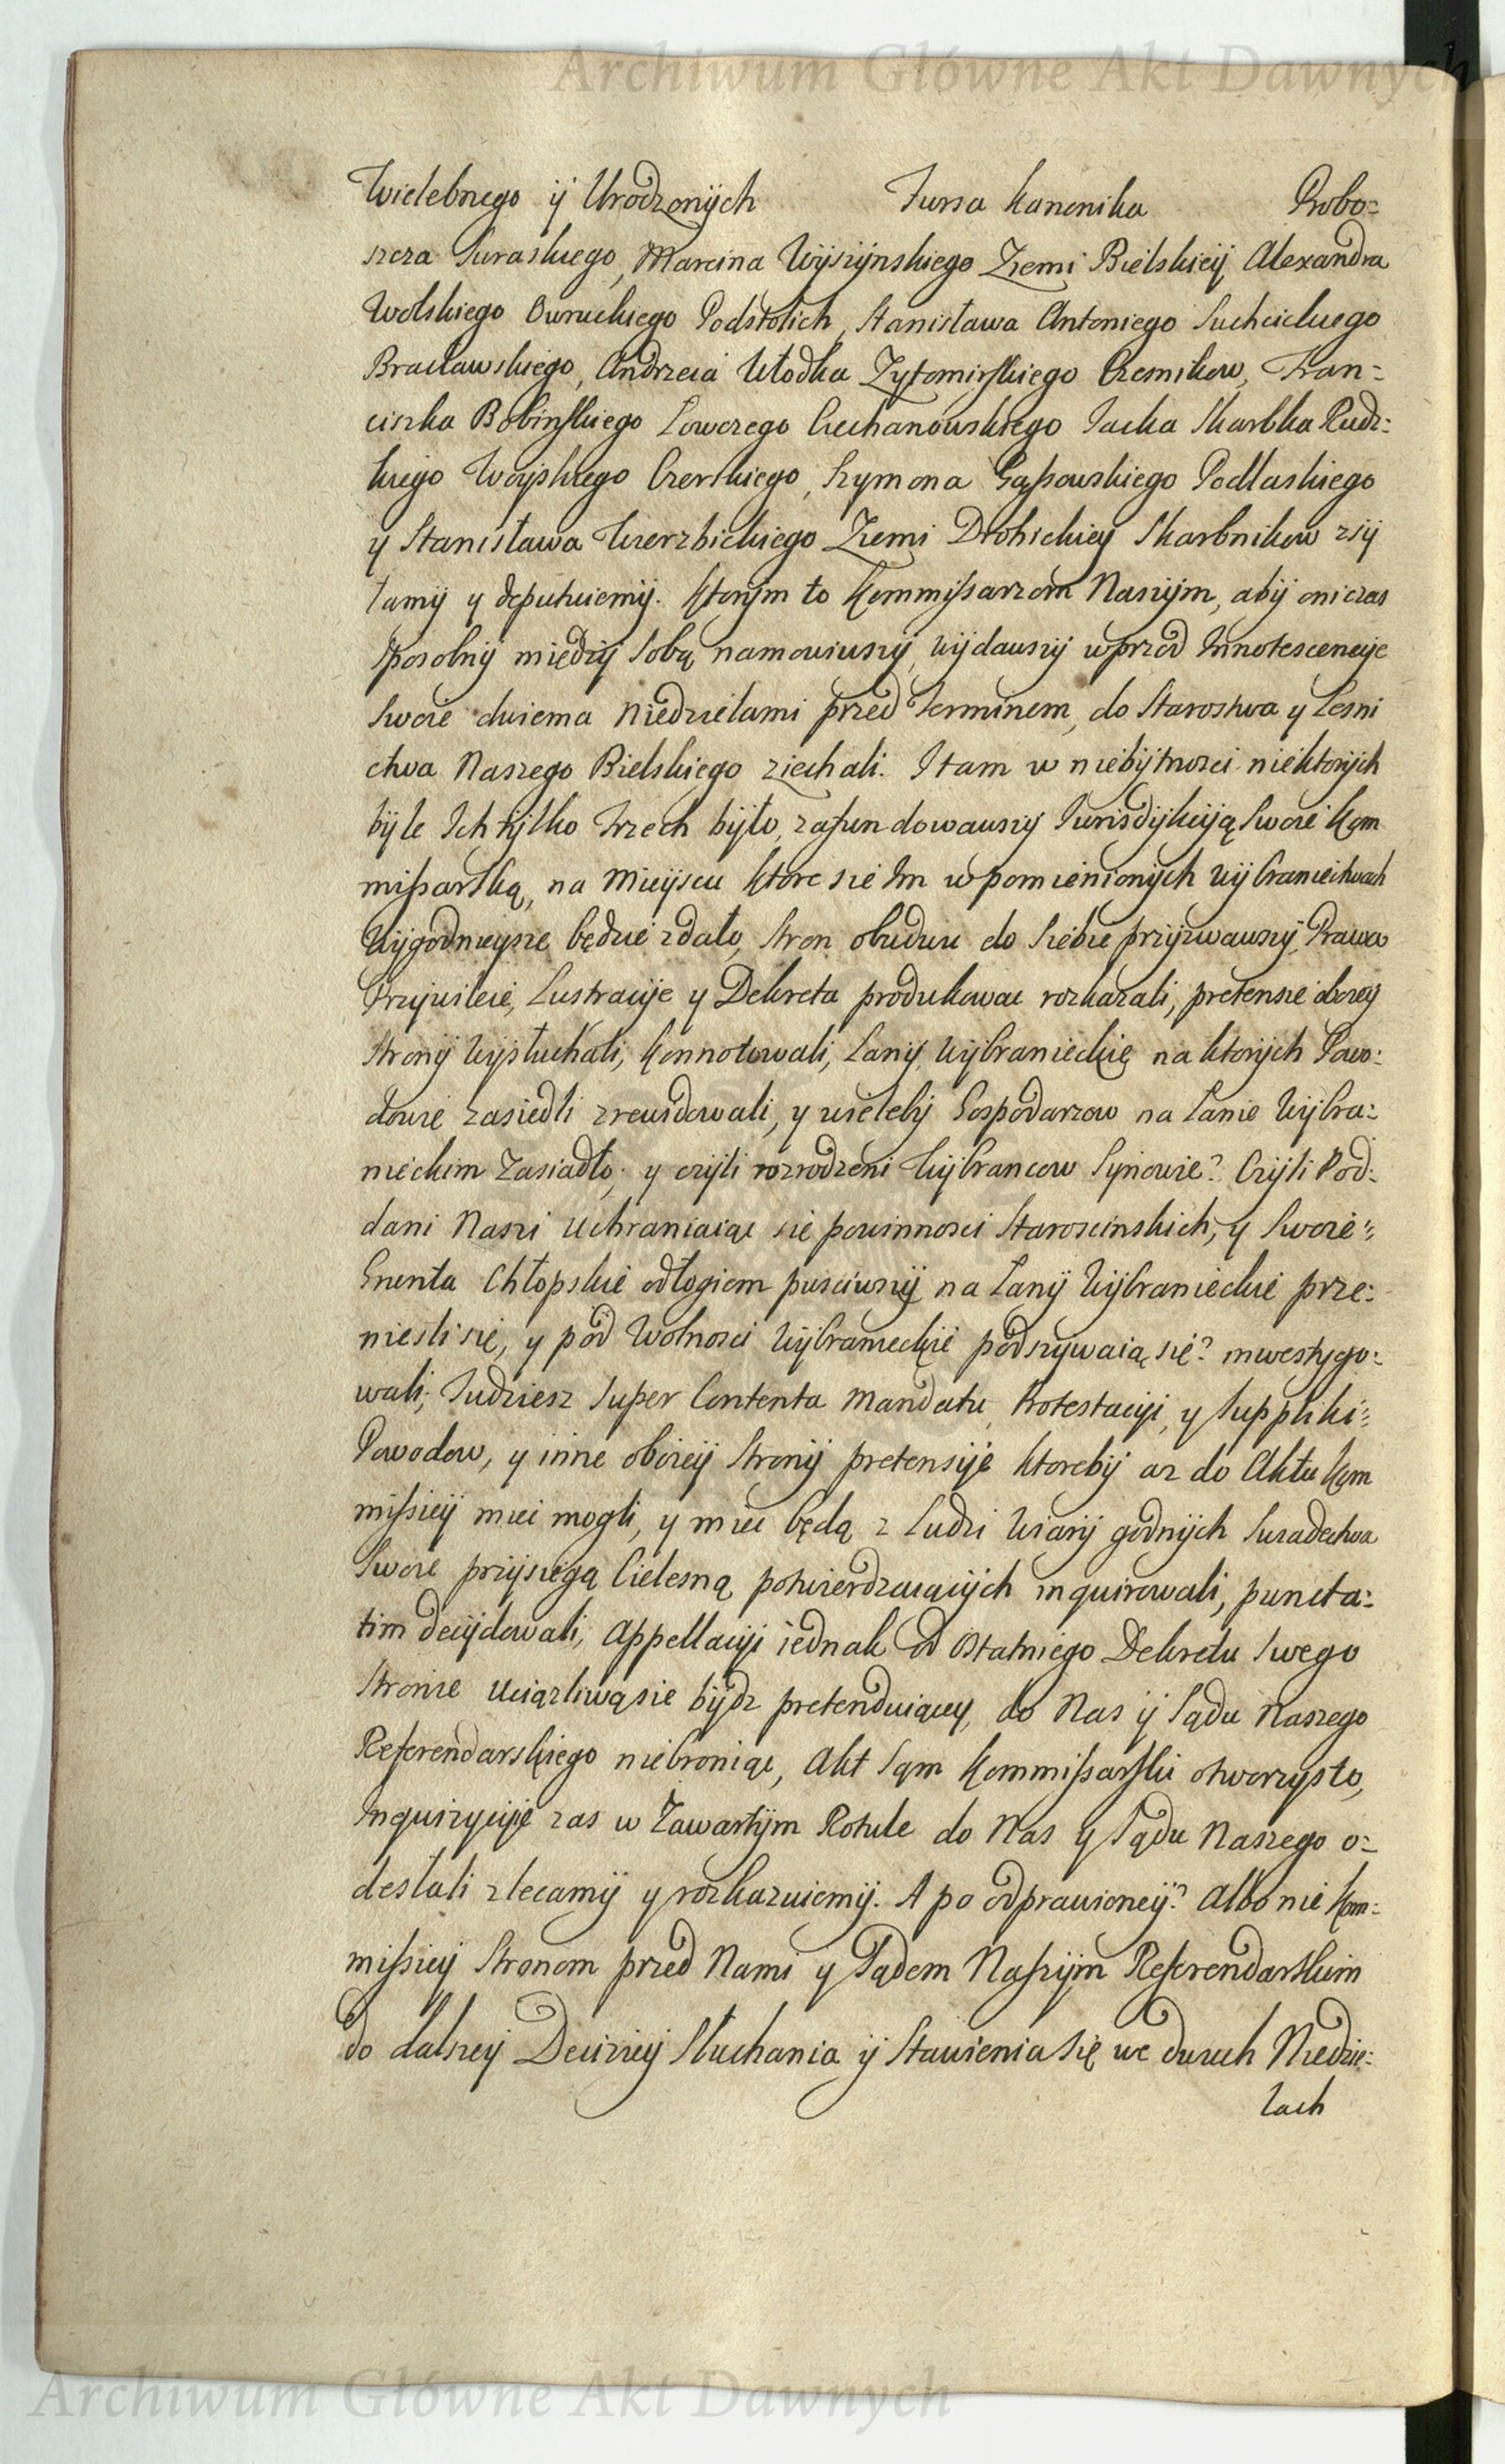 Archiwum Główne Akt Dawnych
Wielebnego ÿ Urodzonÿch Tursa Kanonika Probo=
szcza Suraskiego, Marcina Wÿszÿnskiego Ziemi Bielskieÿ Alexandra
Wolskiego Owruckiego Podstolich, Stanisława Antoniego Suchcickiego
Bracławskiego, Andrzeia Włodka Zytomirskiego Czesnikow, Fran=
ciszka Bobinskiego Łowczego Ciechanowskiego Jacka Skarbka Rudz=
kiego Woÿskiego Czerskiego, Szymona Gąssowskiego Podlaskiego
y Stanisława Wierzbickiego Ziemi Drohickiey Skarbnikow zsÿ
łamÿ y deputuiemÿ. Ktorÿm to Kommissarzom Naszÿm, abÿ oni czas
sposobnÿ międzÿ sobą namowiwszÿ, wÿdawszÿ wprzod Innotescencÿe
swoie dwiema Niedzielami przed Terminem, do Starostwa y Lesni
ctwa Naszego Bielskiego ziechali. I tam w niebÿtnosci niektorÿch
bÿle Ich tÿlko trzech bÿło, zafundowawszÿ Jurisdÿkcÿą swoie Kom
missarską, na Mieÿscu ktore sie Im w pomienionÿch Wÿbraniectwach
Wÿgodnieysze będzie zdało, Stron obudwu do siebie przÿzwawszÿ, Prawa
Przÿwileie, Lustracÿe y Dekreta produkowac rozkazali, pretensie oboieÿ
Stronÿ Wÿsłuchali, Konnotowali, Łanÿ Wÿbranieckie na ktorÿch Powo=
dowie zasiedli zrewidowali, y wielebÿ Gospodarzow na Łanie Wÿbra=
nieckim Zasiadło; y czÿli rozrodzeni Wÿbrancow Sÿnowie? Czÿli Pod=
dani Naszi uchraniaiąc się powinnosci Staroscinskich, y Swoie=
Grunta Chłopskie odłogiem pusciwszÿ na Łanÿ Wÿbranieckie prze=
niesli sie, y pod Wolnosci Wÿbranieckie podszywaią się? inwestygo=
wali; Tudziesz super Contenta Mandatu, Protestacÿi, y Suppliki=
Powodow, y inne oboieÿ Stronÿ pretensÿie ktorebÿ az do Aktu Kom
missieÿ miec mogli, y miec będą z Ludzi Wiarÿ godnÿch Swiadectwa
Swoie przÿsięgą Cielesną potwierdzaiącÿch inquirowali, puncta=
tim decÿdowali, Appellacÿi iednak od Ostatniego Dekretu Swego
Stronie Uciązliwąsie bÿdz pretenduiąceÿ, do Nas ÿ Sądu Naszego
Referendarskiego niebroniąc, Akt Sąm Kommissarski otworzysto,
Inquizycÿie zas w Zawartÿm Rotule do Nas y Sądu Naszego o=
desłali zlecamÿ y rozkazuiemÿ. A po odprawioneÿ? Albo nie Kom=
missieÿ Stronom przed Nami y Sądem Naszÿm Referendarskim
do dalszeÿ Deciziey Słuchania ÿ Stawienia się we dwuch Niedzie=
lach
Archiwum Główne Akt Dawnych